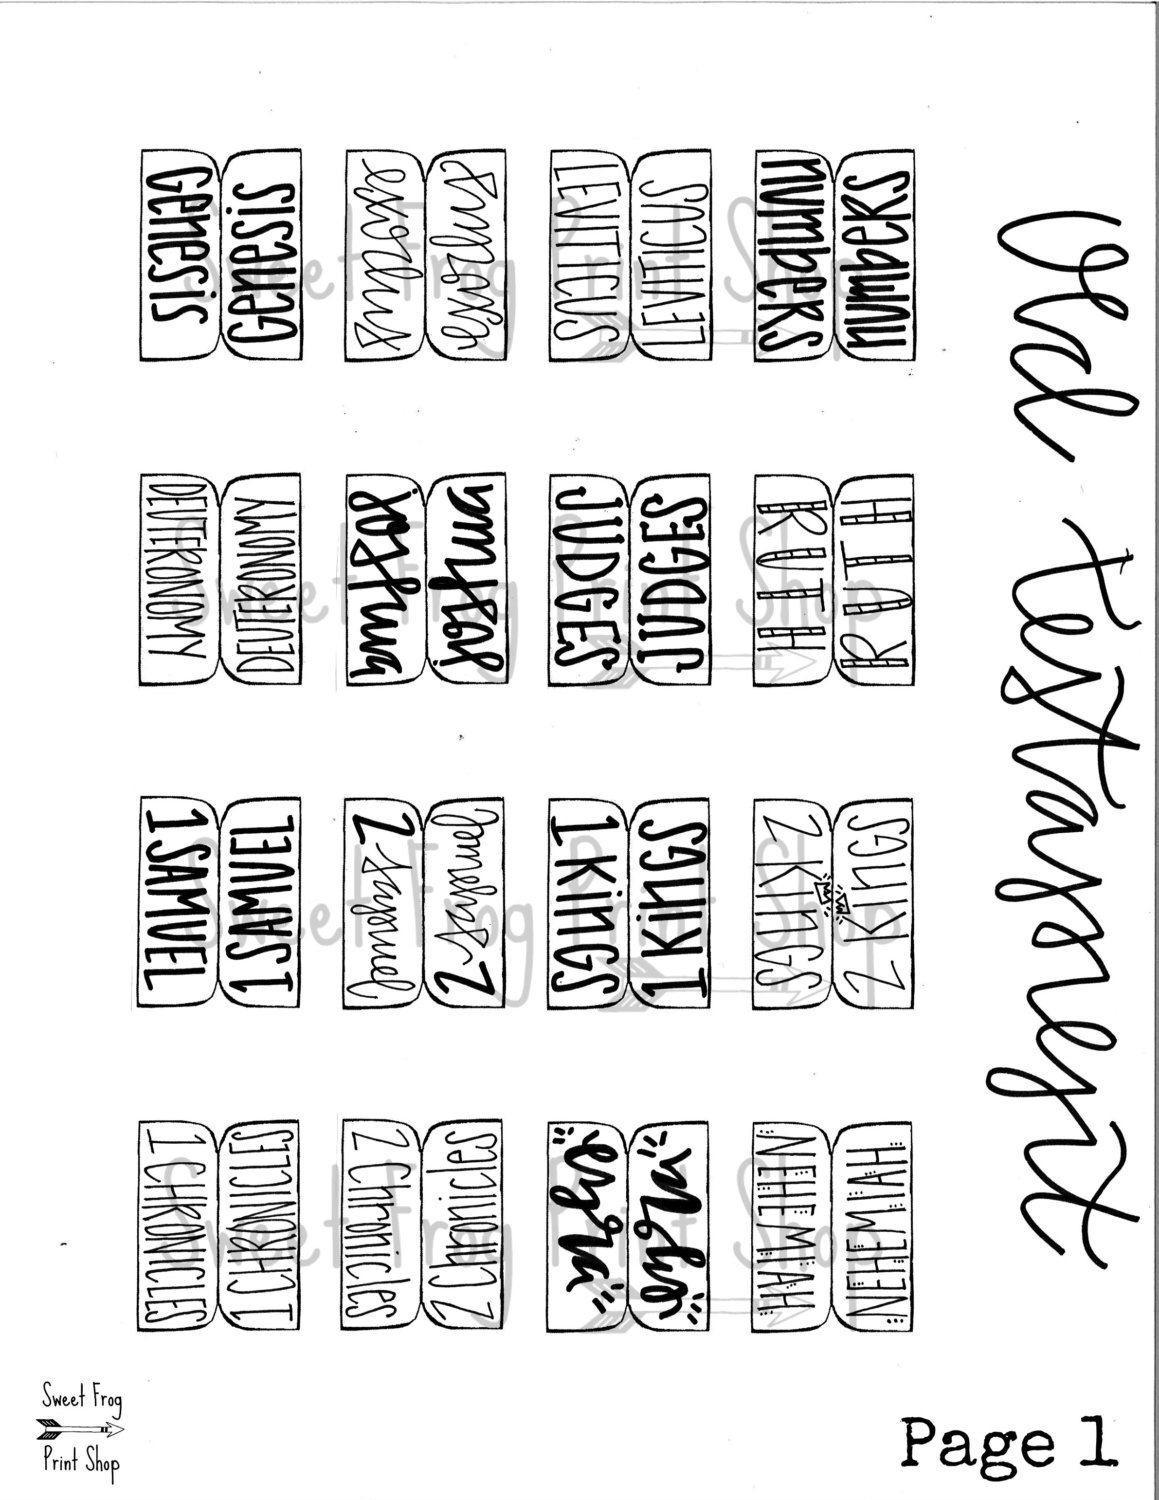 old testament
Genesis Genesis
exodus exodus
LEVITICUS LEVITICUS
numbeRS numbeRS
Sweet Frog Print Shop
DEUTERONOMY DEUTERONOMY
joshua joshua
JUDGES JUDGES
RUTH RUTH
Sweet Frog Print Shop
1 SAMUEL 1 SAMUEL
2 samuel 2 samuel
1 KinGS 1 KinGS
2 KinGS 2 KinGS
Sweet Frog Print Shop
1 CHRONICLES 1 CHRONICLES
2 Chronicles 2 Chronicles
ezra ezra
NEHEMIAH NEHEMIAH
Sweet Frog Print Shop
Sweet Frog
Print Shop
Page 1